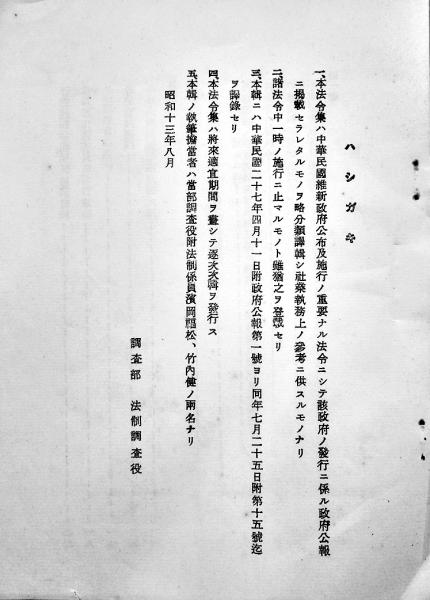 ハシガキ
一、本法令集ハ中華民國維新政府公布及施行ノ重要ナル法令ニシテ該政府ノ發行ニ係ル政府公報
ニ揭載セラレタルモノヲ略分類譯輯シ社業執務上ノ參考ニ供スルモノナリ
二、諸法令中一時ノ施行ニ止マルモノト雖猶之ヲ登載セリ
三、本輯ニハ中華民國二十七年四月十一日附政府公報第一號ヨリ同年七月二十五日附第十五號迄
ヲ譯錄セリ
四、本法令集ハ將來適宜期間ヲ畫シテ逐次次輯ヲ發行ス
五、本輯ノ執筆擔當者ハ當部調査役附法制係員濱岡福松、竹內健ノ兩名ナリ
昭和十三年八月
調査部 法制調査役